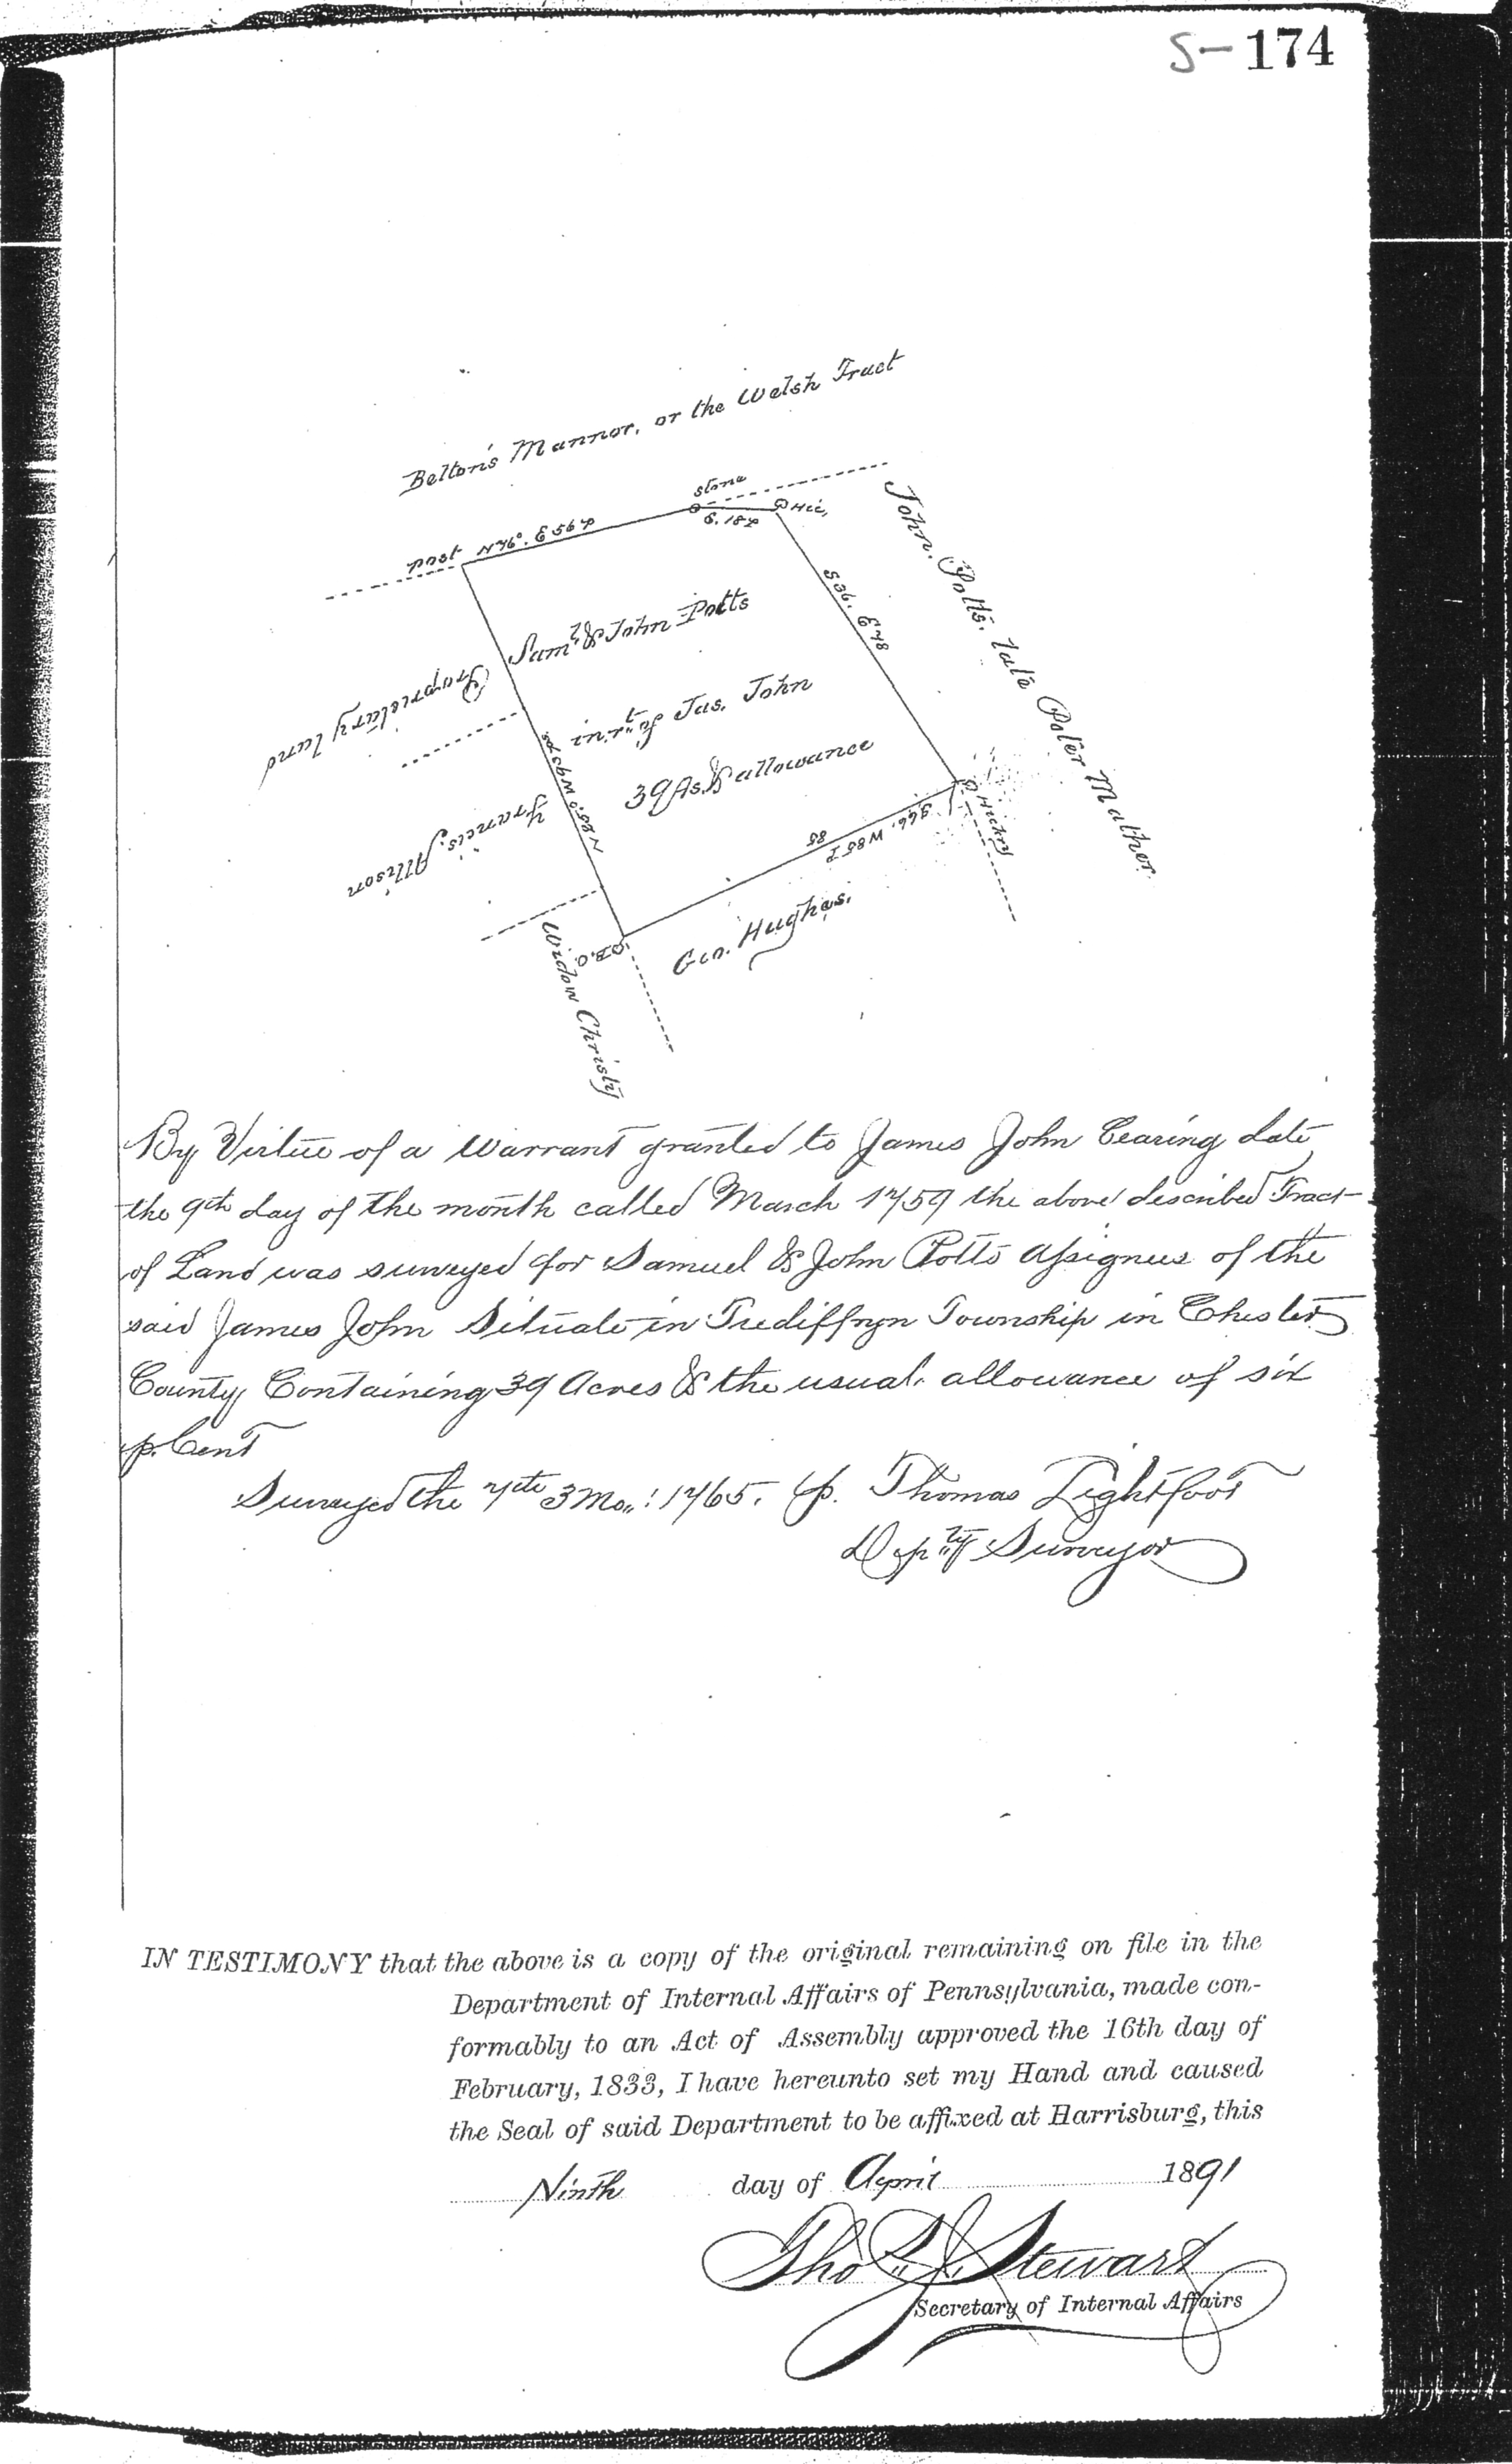 S-174
Belton's Mannor, or the Welsh Tract
stone
post N76°. E 56 P
E. 18 P
Hic,
John. Potts. late Peter Mather
S36. E 78
Saml. & John Potts
in rt. of Jas. John
39 As. & allowance
Proprietary land
Francis. Allison
Hickry
S66. W 85 P
85
B.O.
Widow Christy
Geo. Hughes.
By Virtue of a Warrant granted to James John bearing date
the 9th day of the month called March 1759 the above described Tract
of Land was surveyed for Samuel & John Potts assignees of the
said James John Situate in Trediffryn Township in Chester
County Containing 39 Acres & the usual allowance of six
p. Cent
Surveyed the 7th 3 Mo,,: 1765. p. Thomas Lightfoot
Depty Surveyor
IN TESTIMONY that the above is a copy of the original remaining on file in the
Department of Internal Affairs of Pennsylvania, made con-
formably to an Act of Assembly approved the 16th day of
February, 1833, I have hereunto set my Hand and caused
the Seal of said Department to be affixed at Harrisburg, this
Ninth day of April 1891
Thos. J. Stewart
Secretary of Internal Affairs